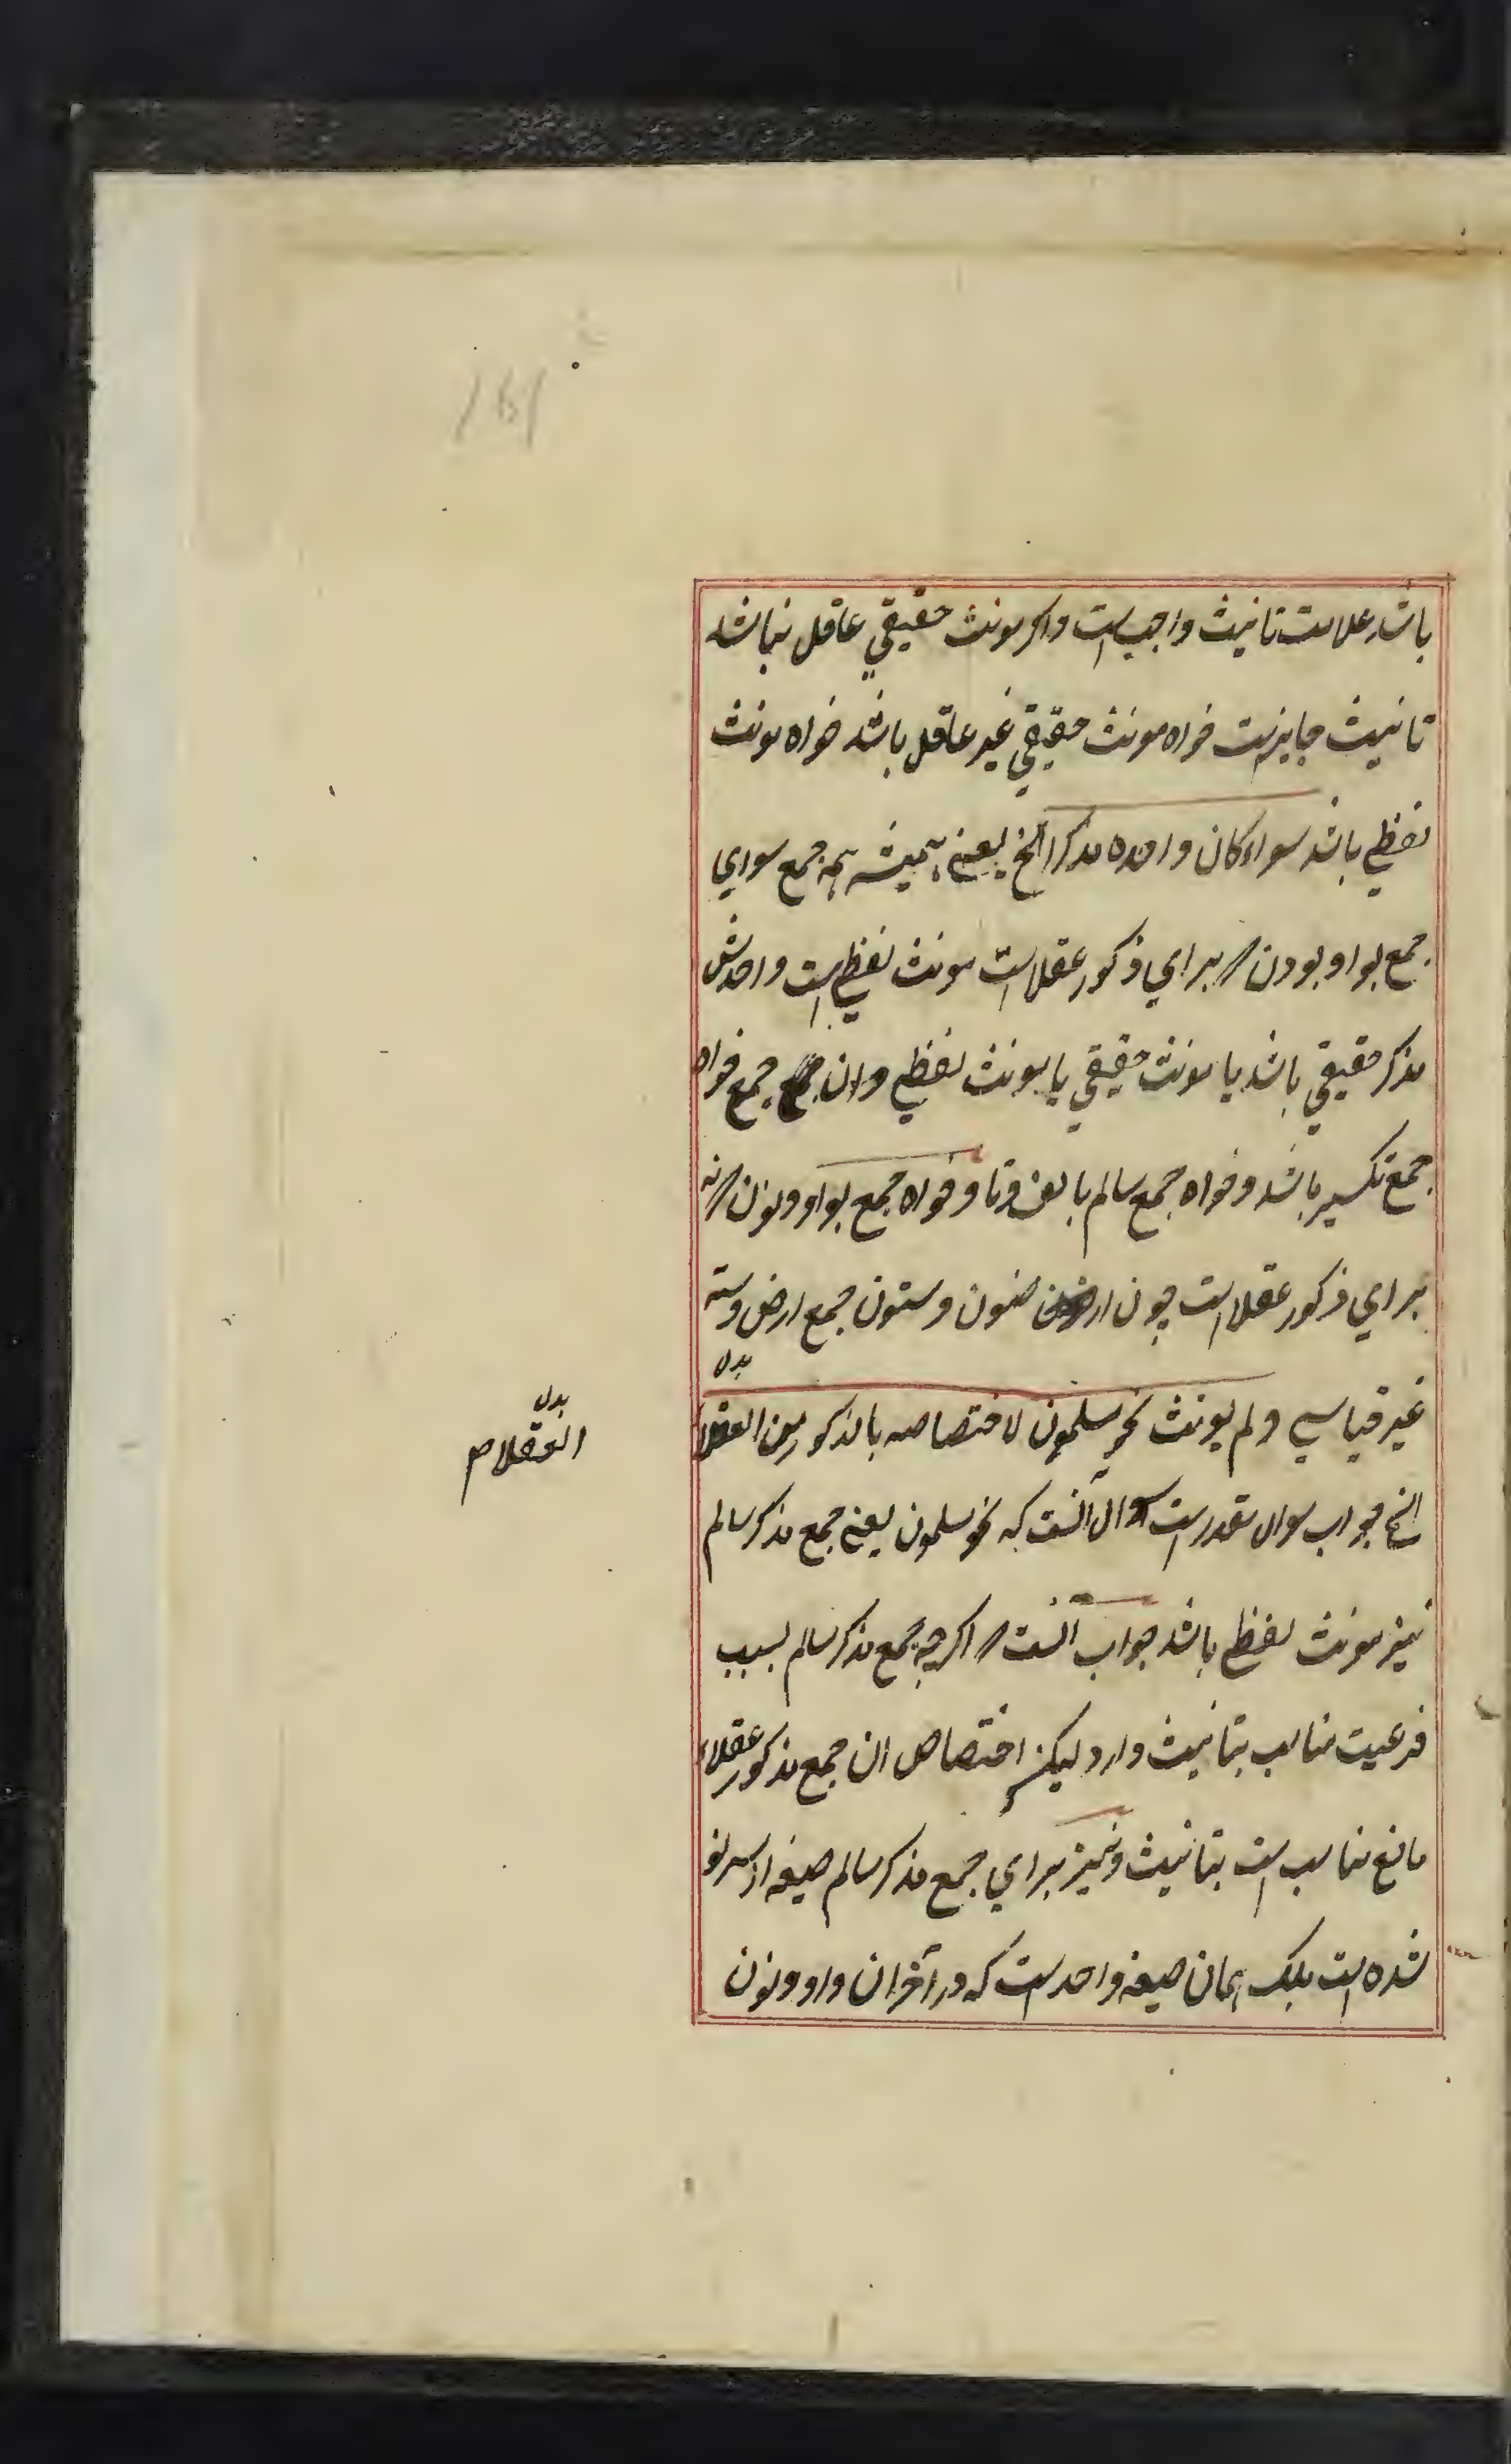 باشد علامت تانیث واجب است واکر مونث حقیقي عاقل نباشد
تانیث جایزست خواه مونث حقیقي غیر عاقل باشد خواه مونث
لفظي باشد سواء کان واحده مذکرا الخ یعنے همیشه همه جمع سواي
جمع بواو بودن براي ذکور عقلاست مونث لفظي است واحدش
مذکر حقیقي باشد یا مونث حقیقي یا مونث لفظي وان جمع خواه
جمع تکسیر باشد وخواه جمع سالم بالف وتا وخواه جمع بواو ونون نه
براي ذکور عقلاست چون ارضون وسنون جمع ارض وسنه
بدل
غیر قیاسي ولم یونث نحو مسلمون لاختصاصه بالذکور من العقلا
الخ جواب سوال مقدرست سوال آنست که نحو مسلمون یعنے جمع مذکر سالم
نیز مونث لفظے باشد جواب آنست اکرچه جمع مذکر سالم بسبب
فرعیت مناسب بتانیث دارد لیکن اختصاص ان جمع مذکور عقلاء
مانع مناسب است بتانیث ونیز براي جمع مذکر سالم صیغه از سر نو
نشده است بلکه همان صیغه واحد است که در آخر ان واو ونون
بدل
العقلاء م
161